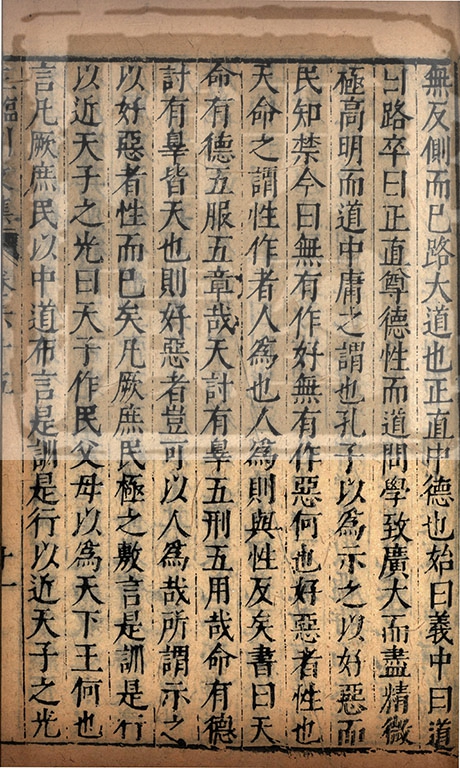 無反側而已路大道也正直中德也始曰義中曰道
曰路卒曰正直尊德性而道問學致廣大而盡精微
極高明而道中庸之謂也孔子以為示之以好惡而
民知禁今曰無有作好無有作惡何也好惡者性也
天命之謂性作者人為也人為則與性反矣書曰天
命有德五服五章哉天討有辠五刑五用哉命有德
討有辠皆天也則好惡者豈可以人為哉所謂示之
以好惡者性而已矣凡厥庶民極之敷言是訓是行
以近天子之光曰天子作民父母以為天下王何也
言凡厥庶民以中道布言是訓是行以近天子之光
王臨川文集 卷六十五 十一